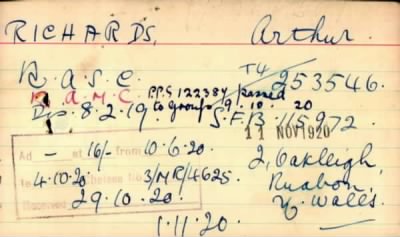 RICHARDS, Arthur.
R.A.S.C. T4/253546.
R.A.M.C. P.P.S 122384 passed
Dis. 8.2.19 to Groups 9.10.20
S.F.B. 165972.
11 NOV 1920
Ad at 16/- from 10.6.20. 2, Oakleigh,
4.10.20 Chelsea No 3/MR/4625 Ruabon,
Received 29.10.20 N. Wales.
1.11.20.